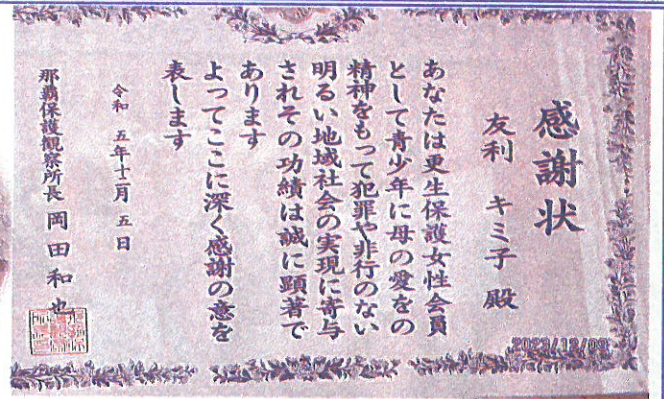 感謝状
友利 キミ子 殿
あなたは更生保護女性会員
として青少年に母の愛をの
精神をもって犯罪や非行のない
明るい地域社会の実現に寄与
されその功績は誠に顕著で
あります
よってここに深く感謝の意を
表します
令和 五年十二月 五日
那覇保護観察所長 岡田和也